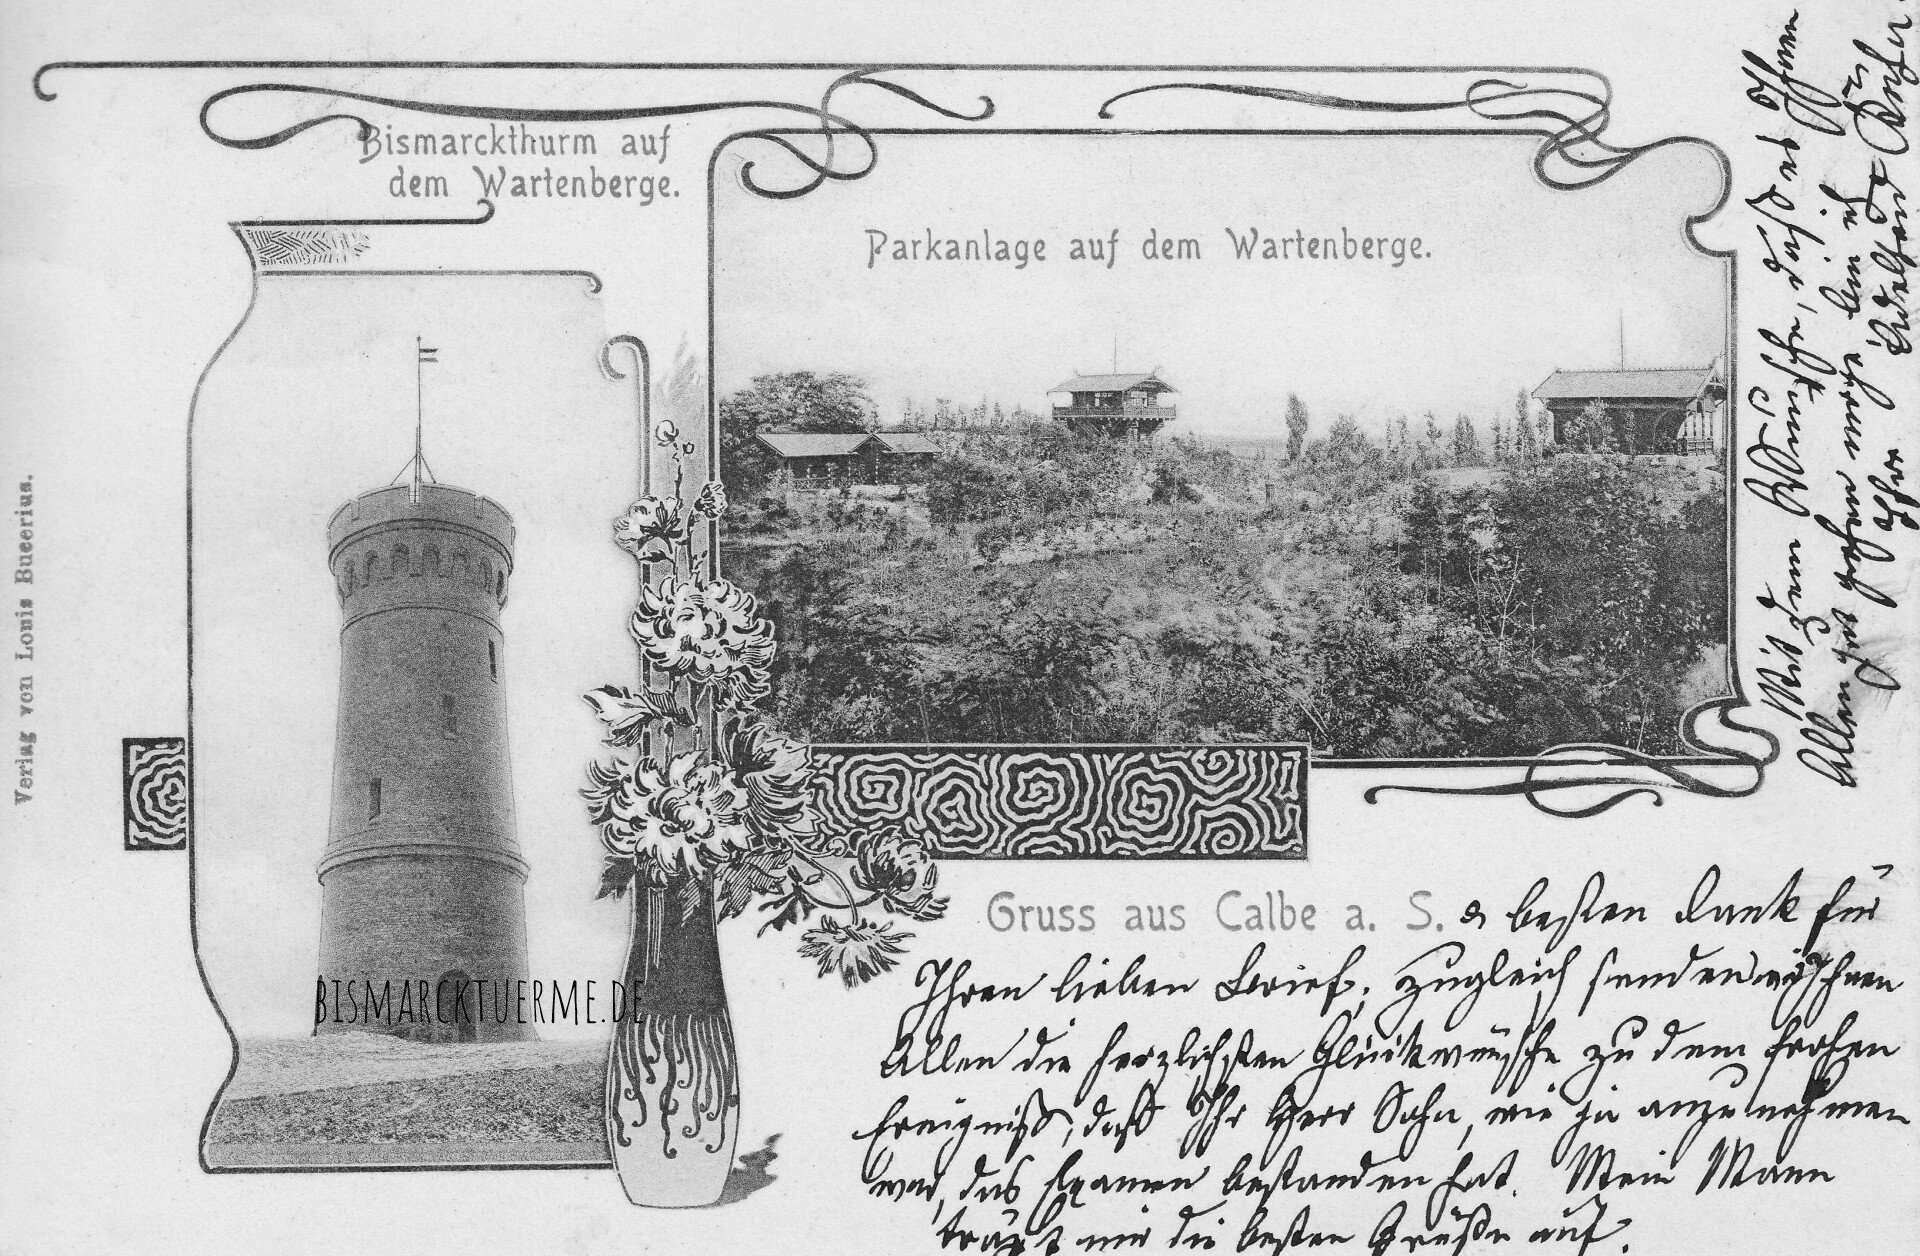 Bismarckthurm auf
dem Wartenberge.
Parkanlage auf dem Wartenberge.
Verlag von Louis Bucerius.
BISMARCKTUERME.DE
Gruss aus Calbe a. S. & besten Dank für
Ihren lieben Brief, zugleich senden wir Ihnen
Allen die herzlichsten Glückwünsche zu dem frohen
Ereigniß, daß Ihr Herr Sohn, wie ja anzunehmen
war, das Examen bestanden hat. Mein Mann
trägt mir die besten Grüße auf.
Mit dem Wunsche, daß es Ihnen
Allen recht gut gehen
Ihre